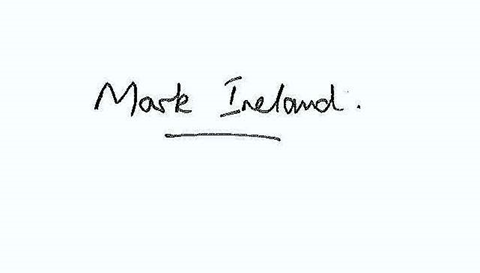 Mark Ireland.